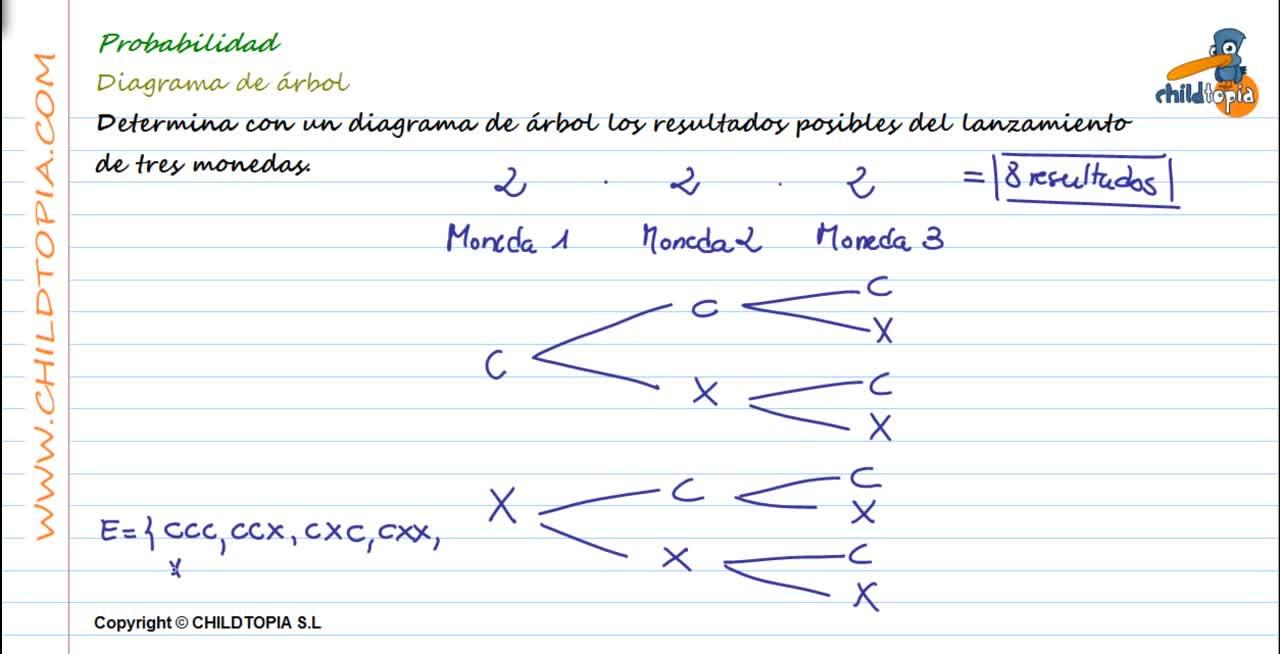 Probabilidad
Diagrama de árbol
childtopia
Determina con un diagrama de árbol los resultados posibles del lanzamiento
de tres monedas.
2 · 2 · 2 = 8 resultados
Moneda 1 Moneda 2 Moneda 3
C
C
X
C
X
C
X
C
X
C
X
C
X
X
E={CCC, CCX, CXC, CXX,
X
WWW.CHILDTOPIA.COM
Copyright © CHILDTOPIA S.L